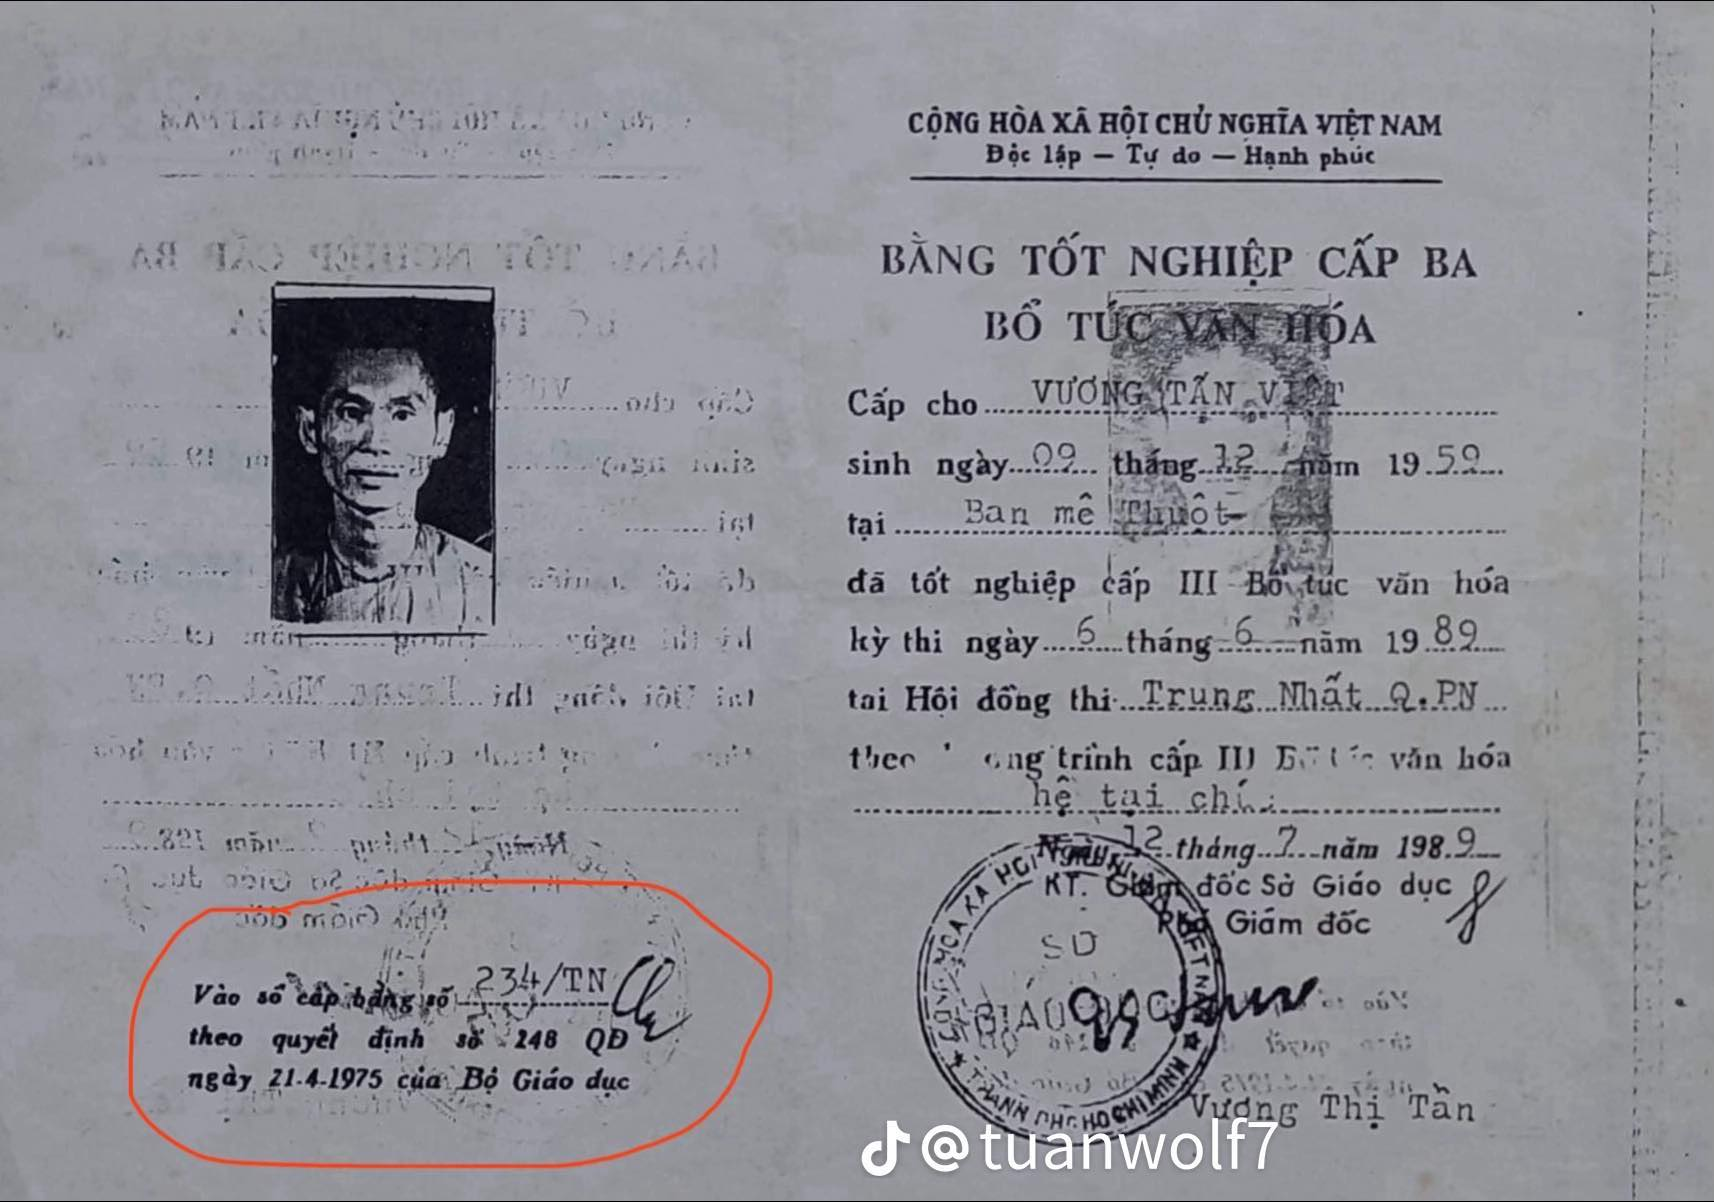 CỘNG HÒA XÃ HỘI CHỦ NGHĨA VIỆT NAM
Độc lập — Tự do — Hạnh phúc
BẰNG TỐT NGHIỆP CẤP BA
BỔ TÚC VĂN HÓA
Cấp cho VƯƠNG TẤN VIỆT
sinh ngày 09 tháng 12 năm 1959
tại Ban mê Thuột
đã tốt nghiệp cấp III Bổ túc văn hóa
kỳ thi ngày 6 tháng 6 năm 1989
tai Hội đồng thi Trung Nhất Q.PN
trình cấp III văn hóa
hệ tại
12 tháng 7 năm 1989
KT. Giám đốc Sở Giáo dục
Phó Giám đốc
SỞ
GIÁO DỤC
THÀNH PHỐ HỒ CHÍ MINH
Vương Thị Tần
Vào sổ cấp bằng số 234/TN
theo quyết định số 248 QĐ
ngày 21-4-1975 của Bộ Giáo dục
@tuanwolf7